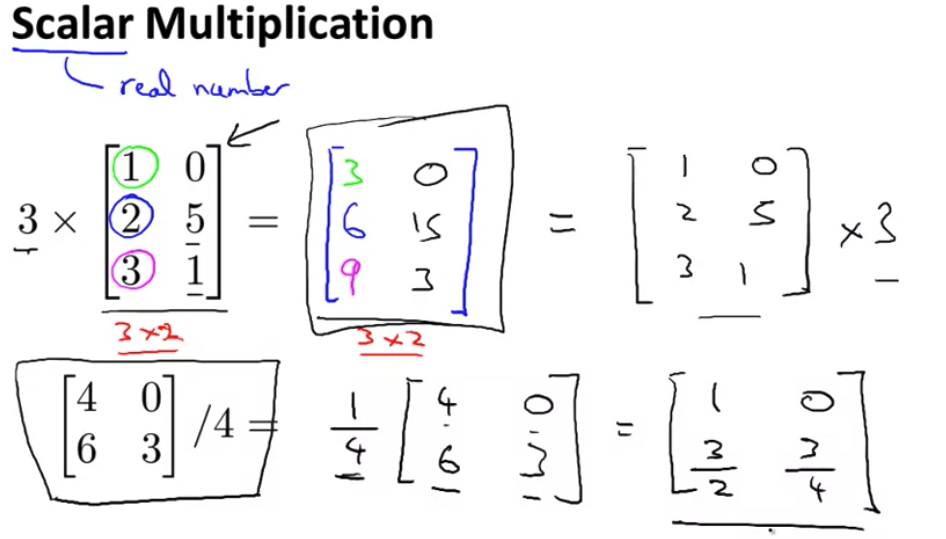 Scalar Multiplication
real number
3 × [1 0; 2 5; 3 1] = [3 0; 6 15; 9 3] = [1 0; 2 5; 3 1] × 3
3×2 3×2
[4 0; 6 3] /4 = 1/4 [4 0; 6 3] = [1 0; 3/2 3/4]